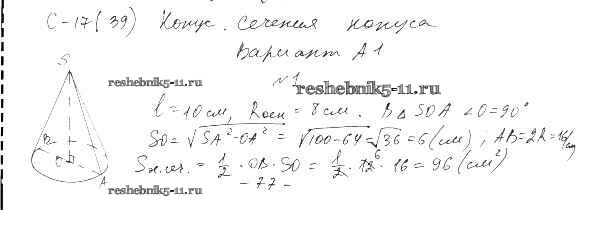 С-17(39) Конус. Сечения конуса
Вариант А1
№1
reshebnik5-11.ru
reshebnik5-11.ru
l = 10 см, Rосн = 8 см. В △ SOA ∠O = 90°
SO = √SA² - OA² = √100-64 = √36 = 6 (см); AB = 2R = 16/см
Sн.сеч. = 1/2 · OB · SO = 1/2 · 12⁶ · 16 = 96 (см²)
- 77 -
reshebnik5-11.ru
S
B
O
A